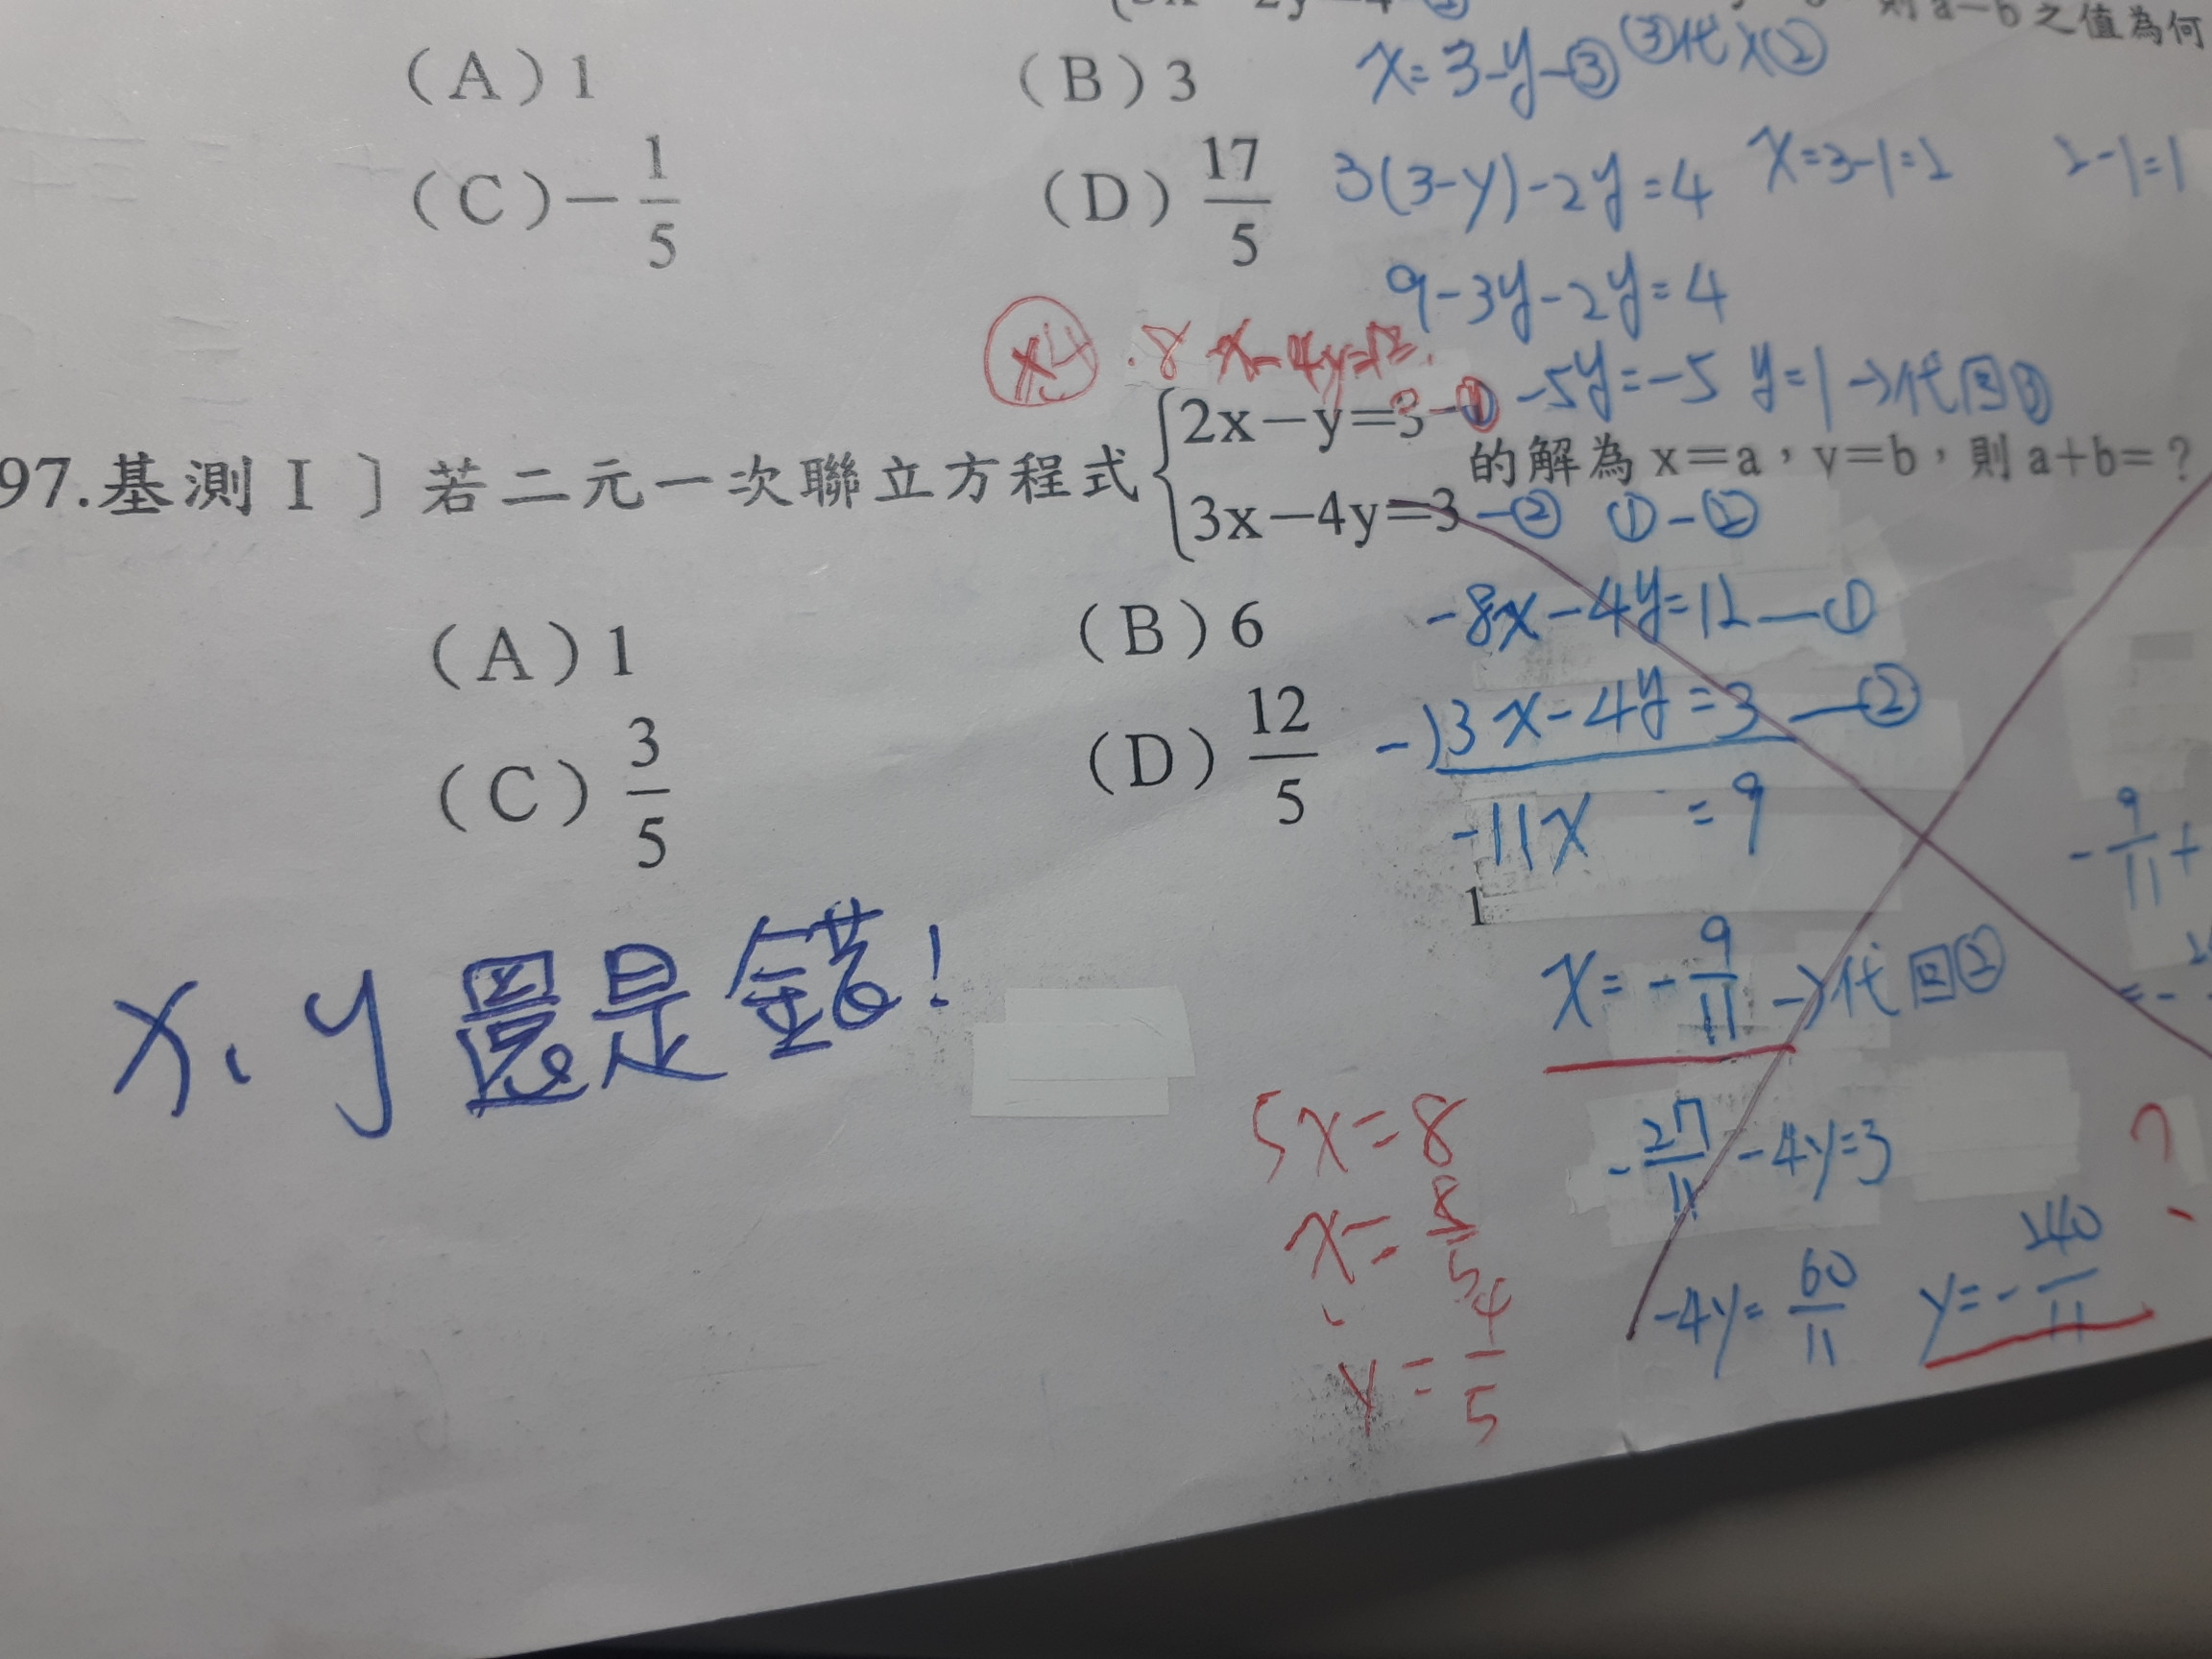 則a-b之值為何
(A)1
(B)3
x=3-y-③ ③代入②
(C)-1/5
(D)17/5
3(3-y)-2y=4 x=3-1=2 2-1=1
9-3y-2y=4
x4 8x-4y=12
-5y=-5 y=1→代回③
97.基測I〕若二元一次聯立方程式{2x-y=3-① 3x-4y=3-② 的解為x=a,y=b,則a+b=?
①-②
(A)1
(B)6
(C)3/5
(D)12/5
-8x-4y=12—①
-)3x-4y=3—②
-11x =9
1
x=-9/11→代回②
-9/11+
x、y還是錯!
-27/11-4y=3
?
-4y=60/11 y=-240/11
5x=8
x=8/5
y=4/5